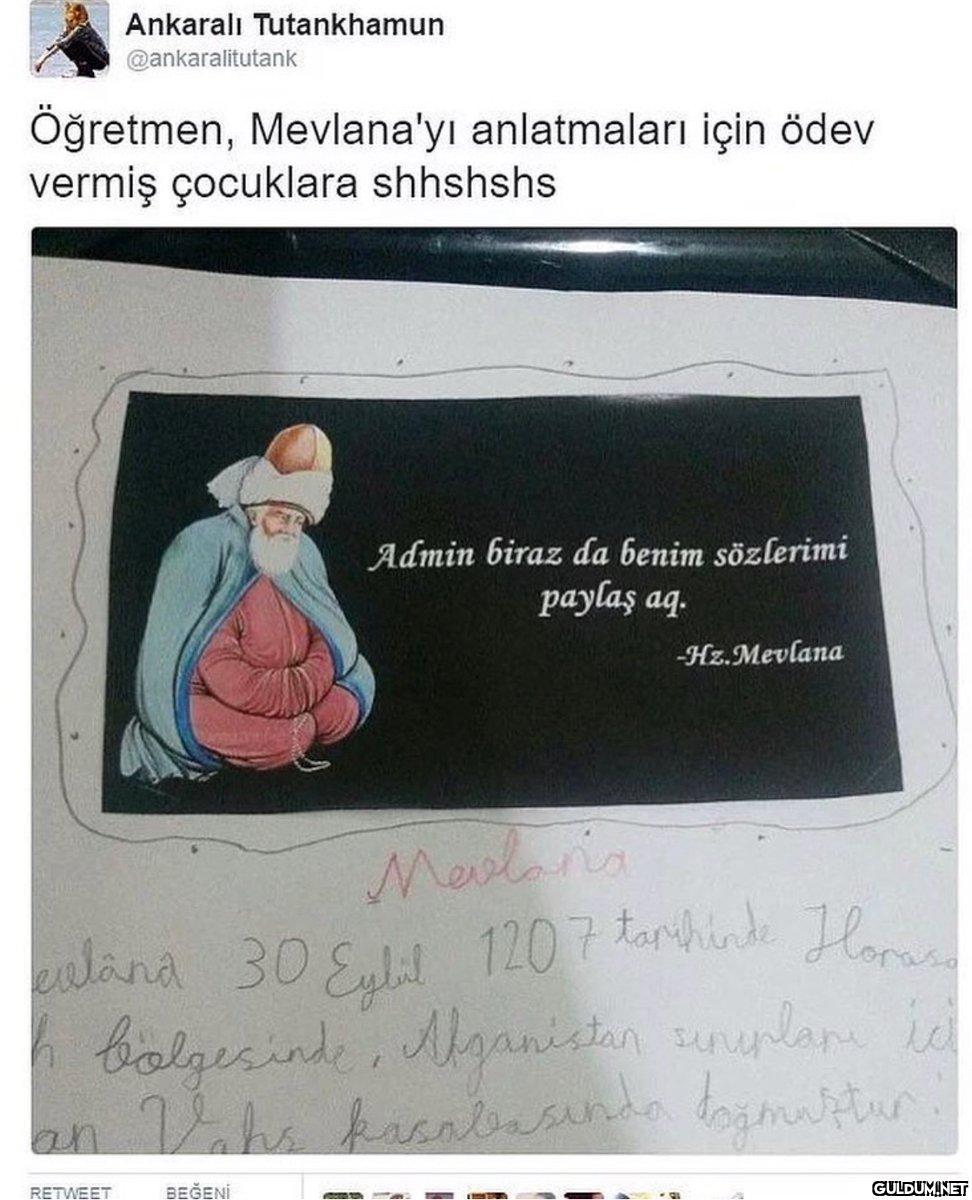 Ankaralı Tutankhamun
@ankaralitutank
Öğretmen, Mevlana'yı anlatmaları için ödev
vermiş çocuklara shhshshs
Admin biraz da benim sözlerimi
paylaş aq.
-Hz.Mevlana
Mevlana
evlânâ 30 Eylül 1207 tarihinde Horasa
h bölgesinde, Afganistan sınırları içi
an Vahş kasabasında doğmuştur.
RETWEET BEĞENİ
GULDUM.NET